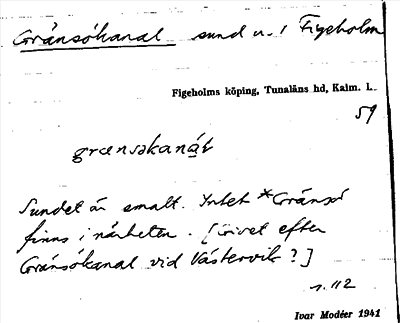 Gränsökanal sund u. i Figeholm
Figeholms köping, Tunaläns hd, Kalm. l.
59
grænsəkanál
Sundet är smalt. Intet *Gränsö
finns i närheten. [Givet efter
Gränsökanal vid Västervik?]
s. 112
Ivar Modéer 1941